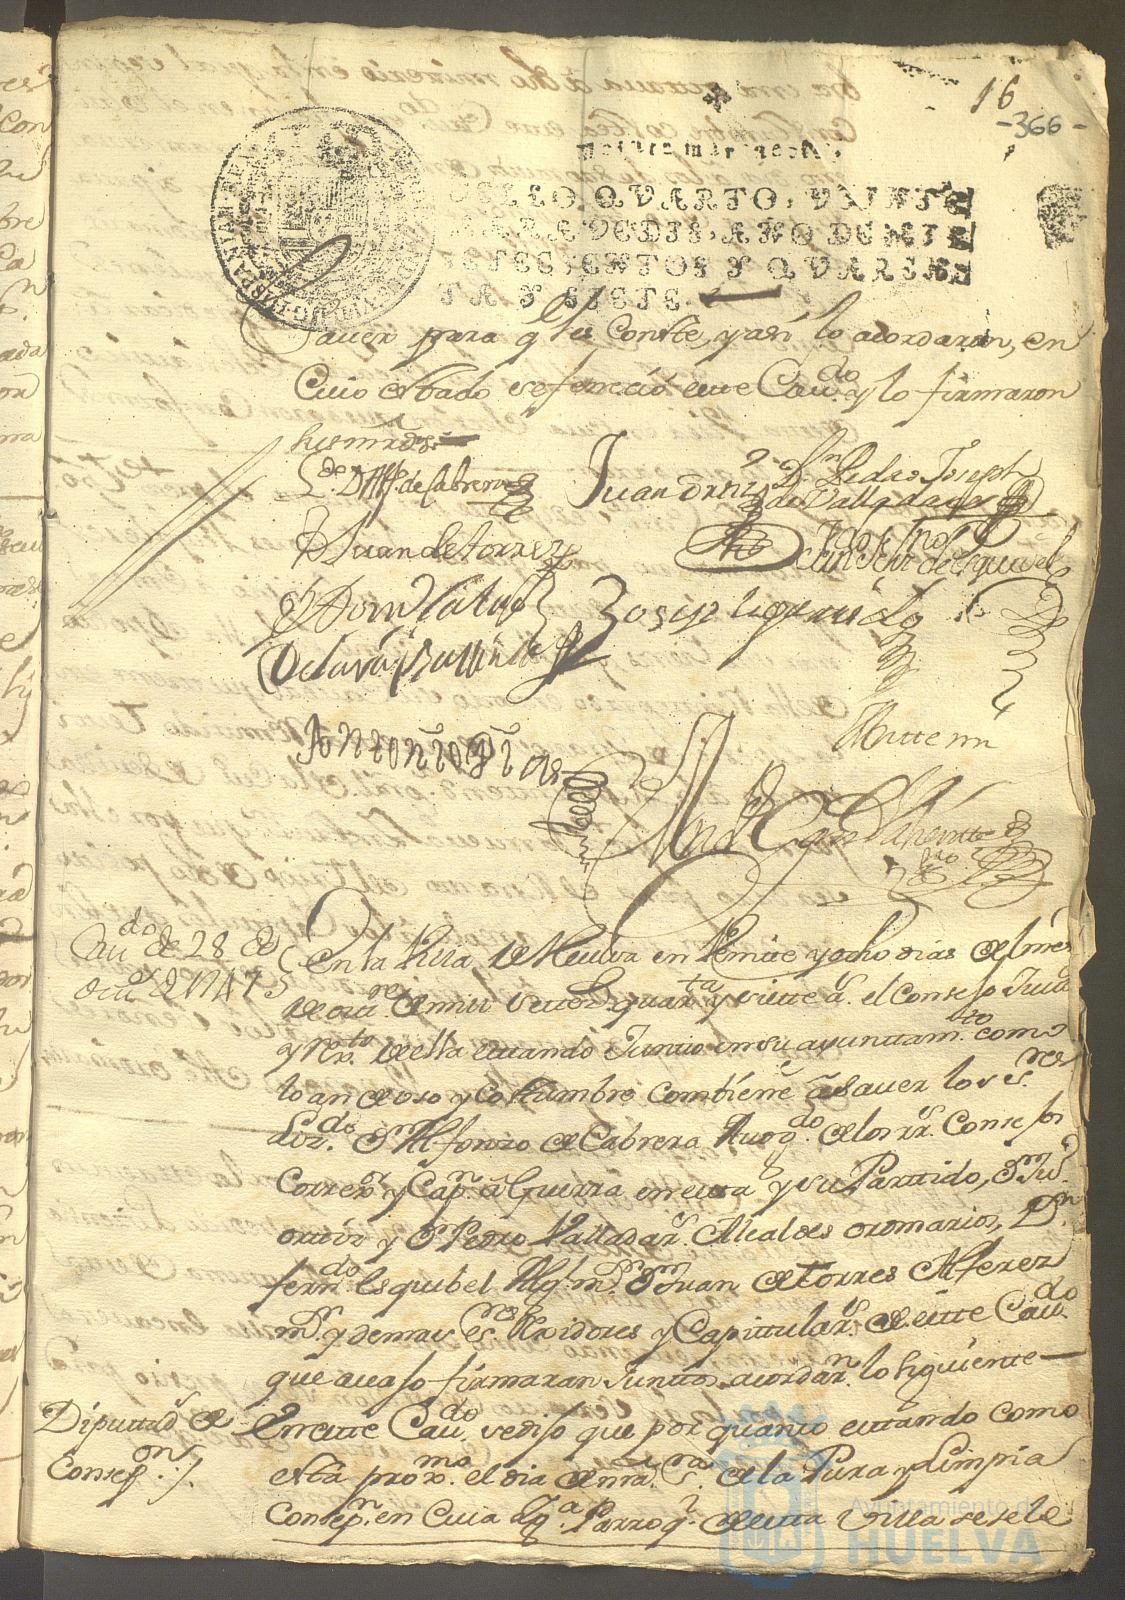 16
-366-
SELLO QVARTO, VEINTE
MARAVEDIS, AÑO DE MIL
SETECIENTOS Y QVAREN
TA Y SIETE.
saver para q les Conste, y asi lo acordaran, en
Cuio estado se feneció este Cau.do y lo firmaron
sus mrds.
L.do D Alf.o de Cabrera
Juan Ortiz
D.n Pedro Joseph
de Valladares
Juan de torrez
Joseph
Antonio Diaz
Ante mi
Cau.do de 28 de
oct.e de 1747
En la Villa de Huelva en Veinte y ocho dias del mes
de oct.re de mill setez.s quar.ta y siette a.s el Consejo Justa
y Rex.to de ella estando Juntto en su ayunttam.to como
lo an de uso y costumbre combiene a Saver los ss.res
Liz.do D.n Alfonzo de Cabrera Auog.do de los rr.s Consejos
Correx.r y Cap.n a Guerra en esta y su Parttido, D.n Ju.n
orttiz y D.n Pedro Valladar.s Alcaldes ordinarios, D.n
fern.do Esquibel Alg.l m.r D.n Juan de torres Alferez
m.r y demas s.res Rexidores y Capittular.s de este Cau.do
que avajo firmaran Junttos acordar.n lo siguiente
Diputtad.s de
Consep.on
En este Cau.do se dijo que por quanto estando como
esta prox.mo el dia de nra. S.ra de la Pura y Limpia
Consep.n en Cuia Ygl.a Parroq.l de esta Villa se sele
Ayuntamiento de
HUELVA